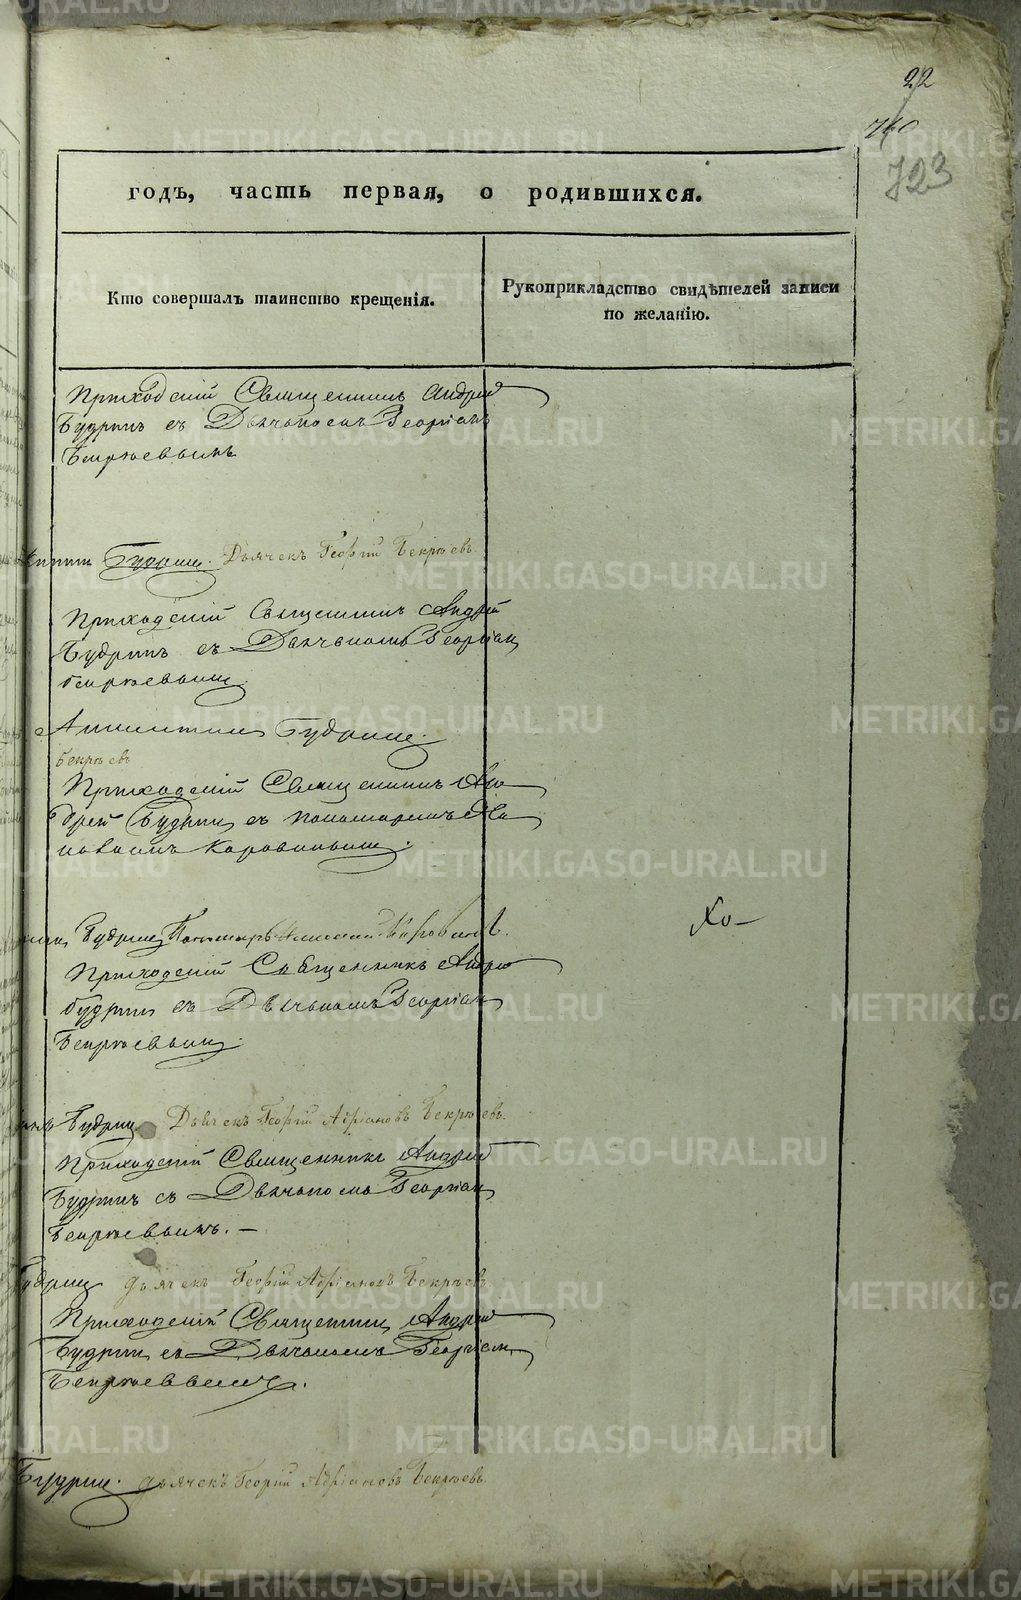 22
740
723
годъ, часть первая, о родившихся.
Кто совершалъ таинство крещенія.
Рукоприкладство свидѣтелей записи
по желанію.
Приходскій Священникъ Андрей
Будринъ съ Дьячкомъ Георгіем
Бекрюевымъ
Будринъ. Дьячекъ Георгій Бекрюевъ.
Приходскій Священникъ Андрей
Будринъ съ Дьячкомъ Георгіем
бекрюевымъ.
Будринъ.
Бекрюевъ
Приходскій Священникъ Ан
дрей Будринъ съ пономаремъ
Коровинымъ.
Будринъ Пономарь Коровинъ.
Хо
Приходскій Священникъ Андрей
будринъ съ Дьячкомъ Георгіем
Бекрюевымъ.
Будринъ Дьячекъ Георгій Адріановъ Бекрюевъ.
Приходскій Священникъ Андрей
Будринъ съ Дьячкомъ Георгіем
Бекрюевымъ. —
Будринъ дьячекъ Георгій Адріановъ Бекрюевъ
Приходскій Священникъ Андрей
Будринъ съ Дьячкомъ Георгіем
Бекрюевымъ.
Будринъ. дьячекъ Георгій Адріановъ Бекрюевъ.
METRIKI.GASO-URAL.RU